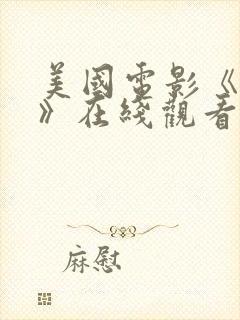 美國電影《
》在綫觀看
麻慰